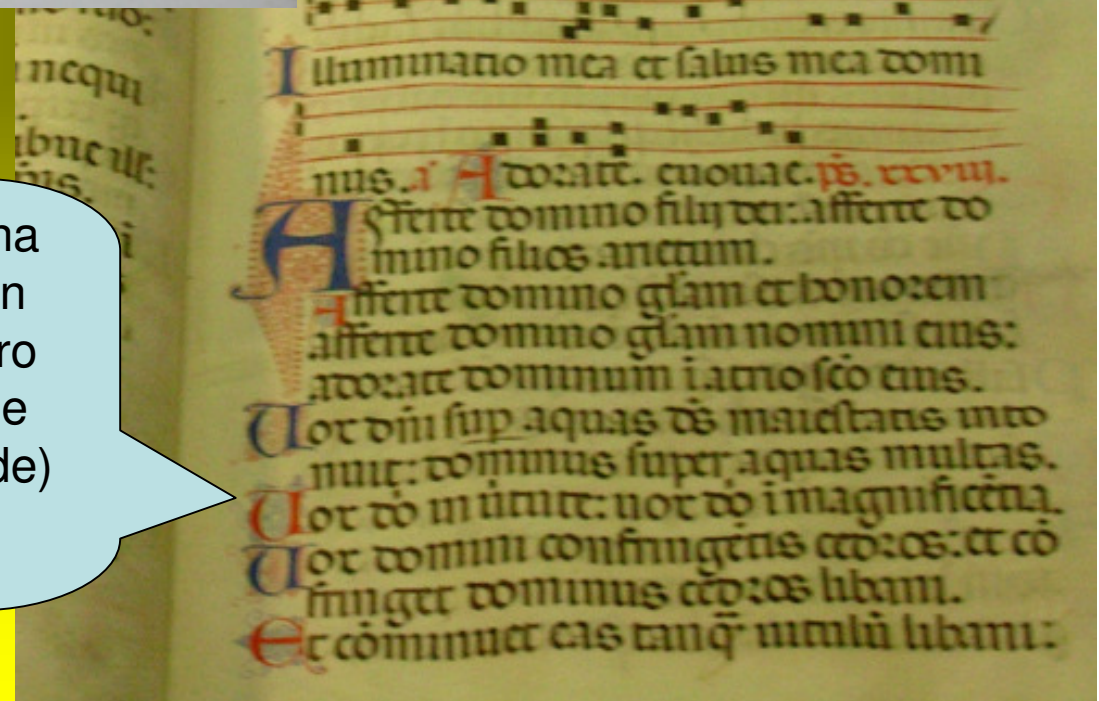 nequi
ibus
na
n
ro
e
de)
Illuminatio mea et salus mea domi
nus. a Adorate. euouae. ps. xxviii.
Afferte domino filij dei: afferte do
mino filios arietum.
Afferte domino gl̄am et honorem
afferte domino gl̄am nomini eius:
adorate dominum i atrio sc̄o eius.
Uox dn̄i sup aquas ds̄ maiestatis into
nuit: dominus super aquas multas.
Uox dō in ūtute: uox dō i magnificētia.
Uox domini confringētis cedros: et cō
fringet dominus cedros libani.
Et cōminuet eas tanq̄ uitulū libani: